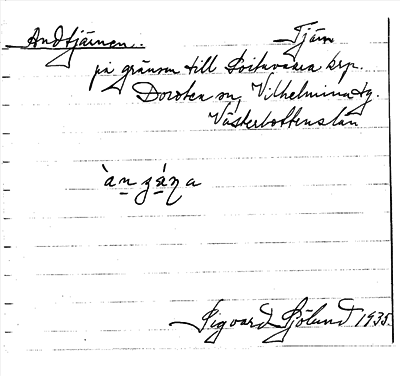 Andtjärnen.. Tjärn
på gränsen till Avitavara krp.
Dorotea sn, Vilhelmina tg.
Västerbottens län
Sigvard Sjölund 1935.